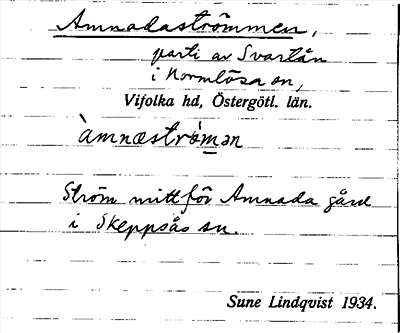 Amnadaströmmen,
parti av Svartån
i Normlösa sn,
Vifolka hd, Östergötl. län.
àmnæstrò́mən
Ström mitt för Amnada gård
i Skeppsås sn.
Sune Lindqvist 1934.